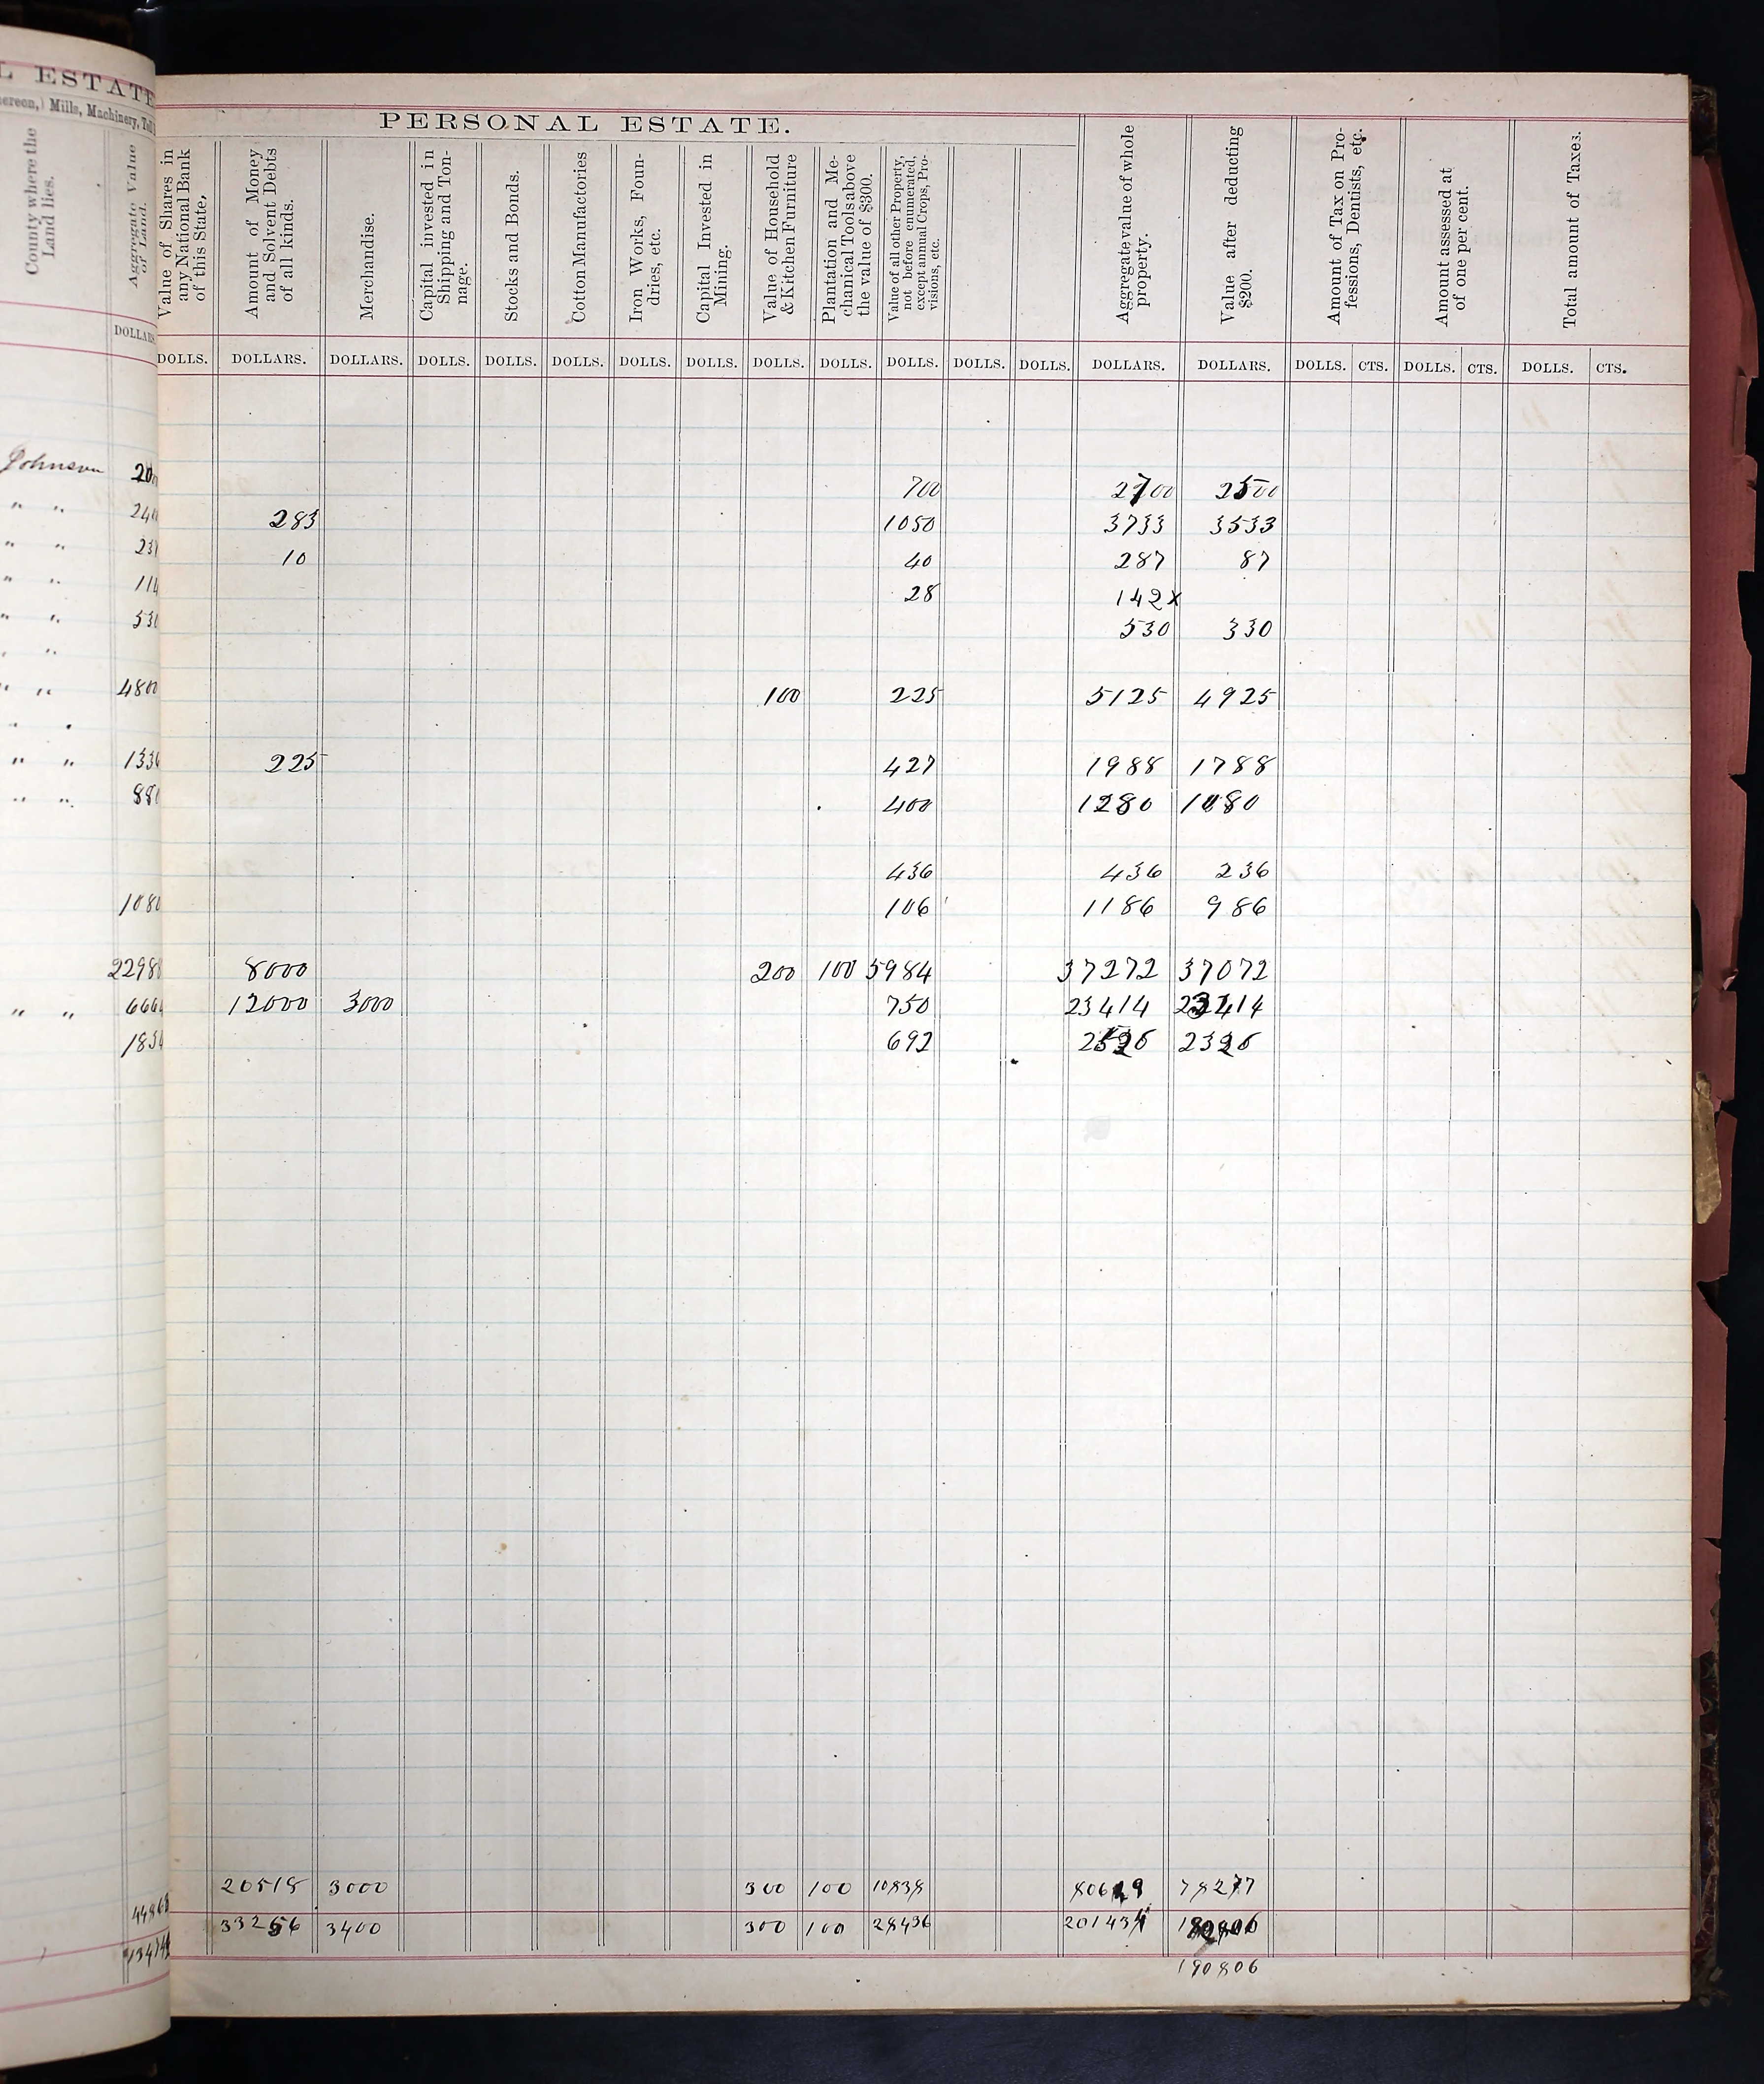 L ESTATE
ereon,) Mills, Machinery, Toll
County where the Land lies.
Aggregate Value of Land.
DOLLARS
PERSONAL ESTATE.
Value of Shares in any National Bank of this State,
Amount of Money and Solvent Debts of all kinds.
Merchandise.
Capital invested in Shipping and Ton-nage.
Stocks and Bonds.
Cotton Manufactories
Iron Works, Foun-dries, etc.
Capital Invested in Mining.
Value of Household & Kitchen Furniture
Plantation and Me-chanical Tools above the value of $300.
Value of all other Property, not before enumerated, except annual Crops, Pro-visions, etc.
Aggregate value of whole property.
Value after deducting $200.
Amount of Tax on Pro-fessions, Dentists, etc.
Amount assessed at of one per cent.
Total amount of Taxes.
DOLLS. DOLLARS. DOLLARS. DOLLS. DOLLS. DOLLS. DOLLS. DOLLS. DOLLS. DOLLS. DOLLS. DOLLS. DOLLS. DOLLARS. DOLLARS. DOLLS. CTS. DOLLS. CTS. DOLLS. CTS.
Johnson 20 700 2700 2500
" " 24 283 1050 3733 3533
" " 23 10 40 287 87
" " 114 28 142 x
" " 530 530 330
" "
" " 4800 100 225 5125 4925
" "
" " 1336 225 427 1988 1788
" " 880 400 1280 1080
436 436 236
1080 106 1186 986
22988 8000 200 100 5984 37272 37072
" " 6664 12000 3000 750 23414 23214
1834 692 2526 2326
44868 20518 3000 300 100 10838 80619 78277
33256 3400 300 100 28436 201434
190806